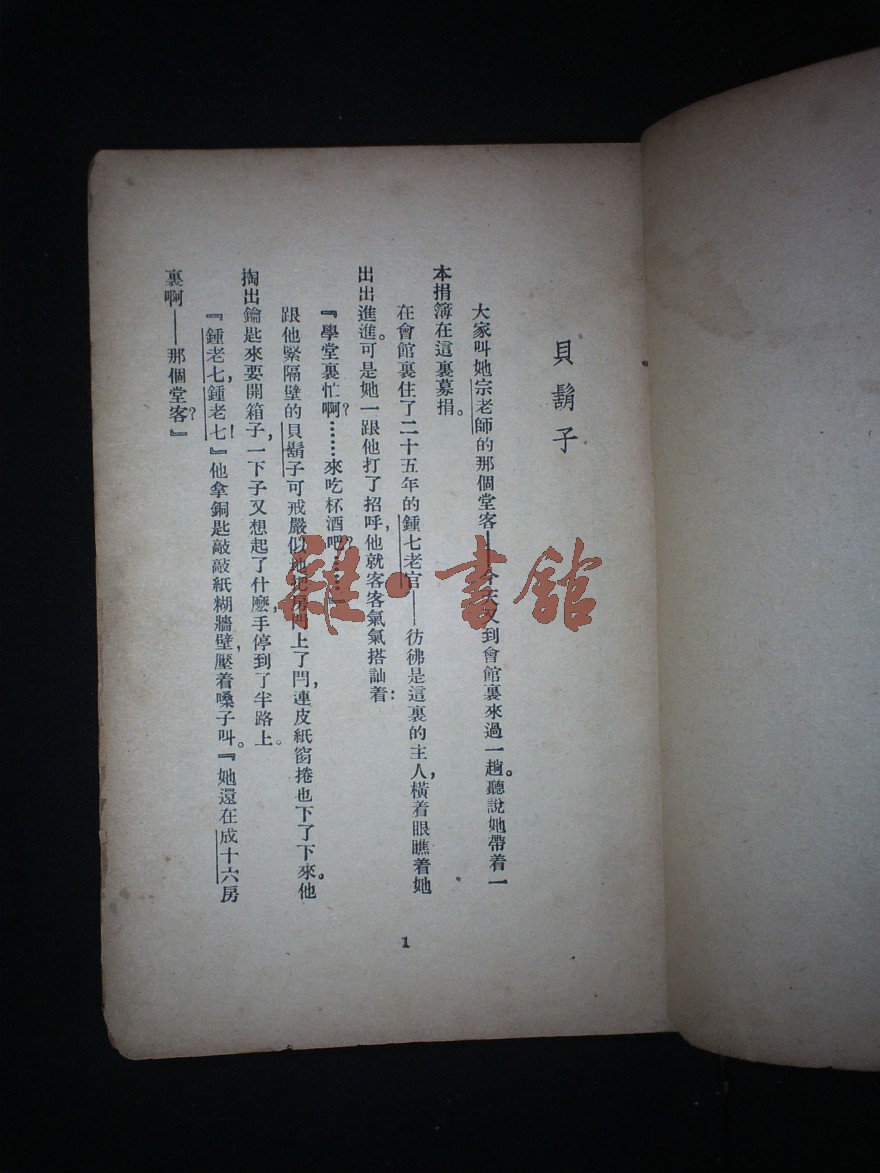 貝鬍子
大家叫她宗老師的那個堂客——今天又到會館裏來過一趟。聽說她帶着一
本捐簿在這裏募捐。
在會館裏住了二十五年的鍾七老官——彷彿是這裏的主人,橫着眼瞧着她
出出進進。可是她一跟他打了招呼,他就客客氣氣搭訕着:
『學堂裏忙啊?……來吃杯酒吧?……』
跟他緊隔壁的貝鬍子可戒嚴似地把房門上了閂,連皮紙窗捲也下了下來。他
掏出鑰匙來要開箱子,一下子又想起了什麽,手停到了半路上。
『鍾老七,鍾老七!』他拿銅匙敲敲紙糊牆壁,壓着嗓子叫。『她還在成十六房
裏啊——那個堂客?』
1
雜·書館